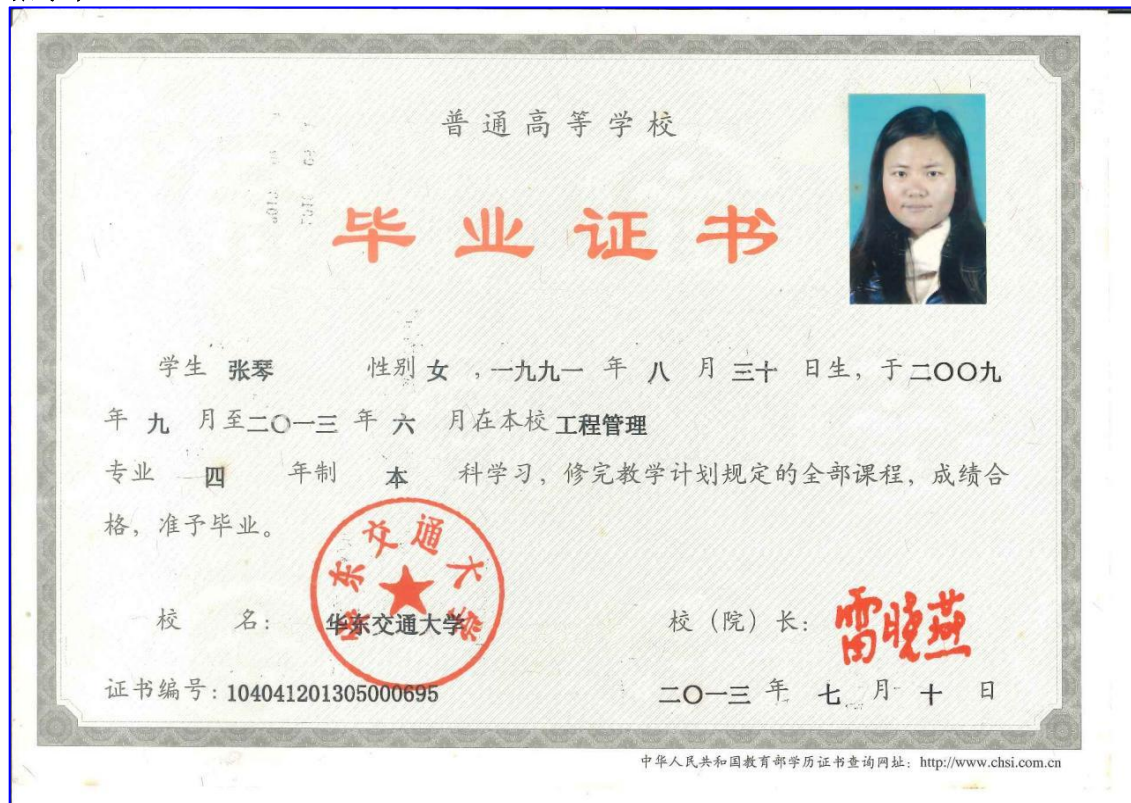 普通高等学校
毕业证书
学生 张琴 性别 女 ，一九九一 年 八 月 三十 日生，于 二〇〇九
年 九 月至 二〇一三 年 六 月在本校 工程管理
专业 四 年制 本 科学习，修完教学计划规定的全部课程，成绩合
格，准予毕业。
华东交通大学
校 名： 华东交通大学 校（院）长： 雷晓燕
证书编号：104041201305000695 二〇一三 年 七 月 十 日
中华人民共和国教育部学历证书查询网址：http://www.chsi.com.cn